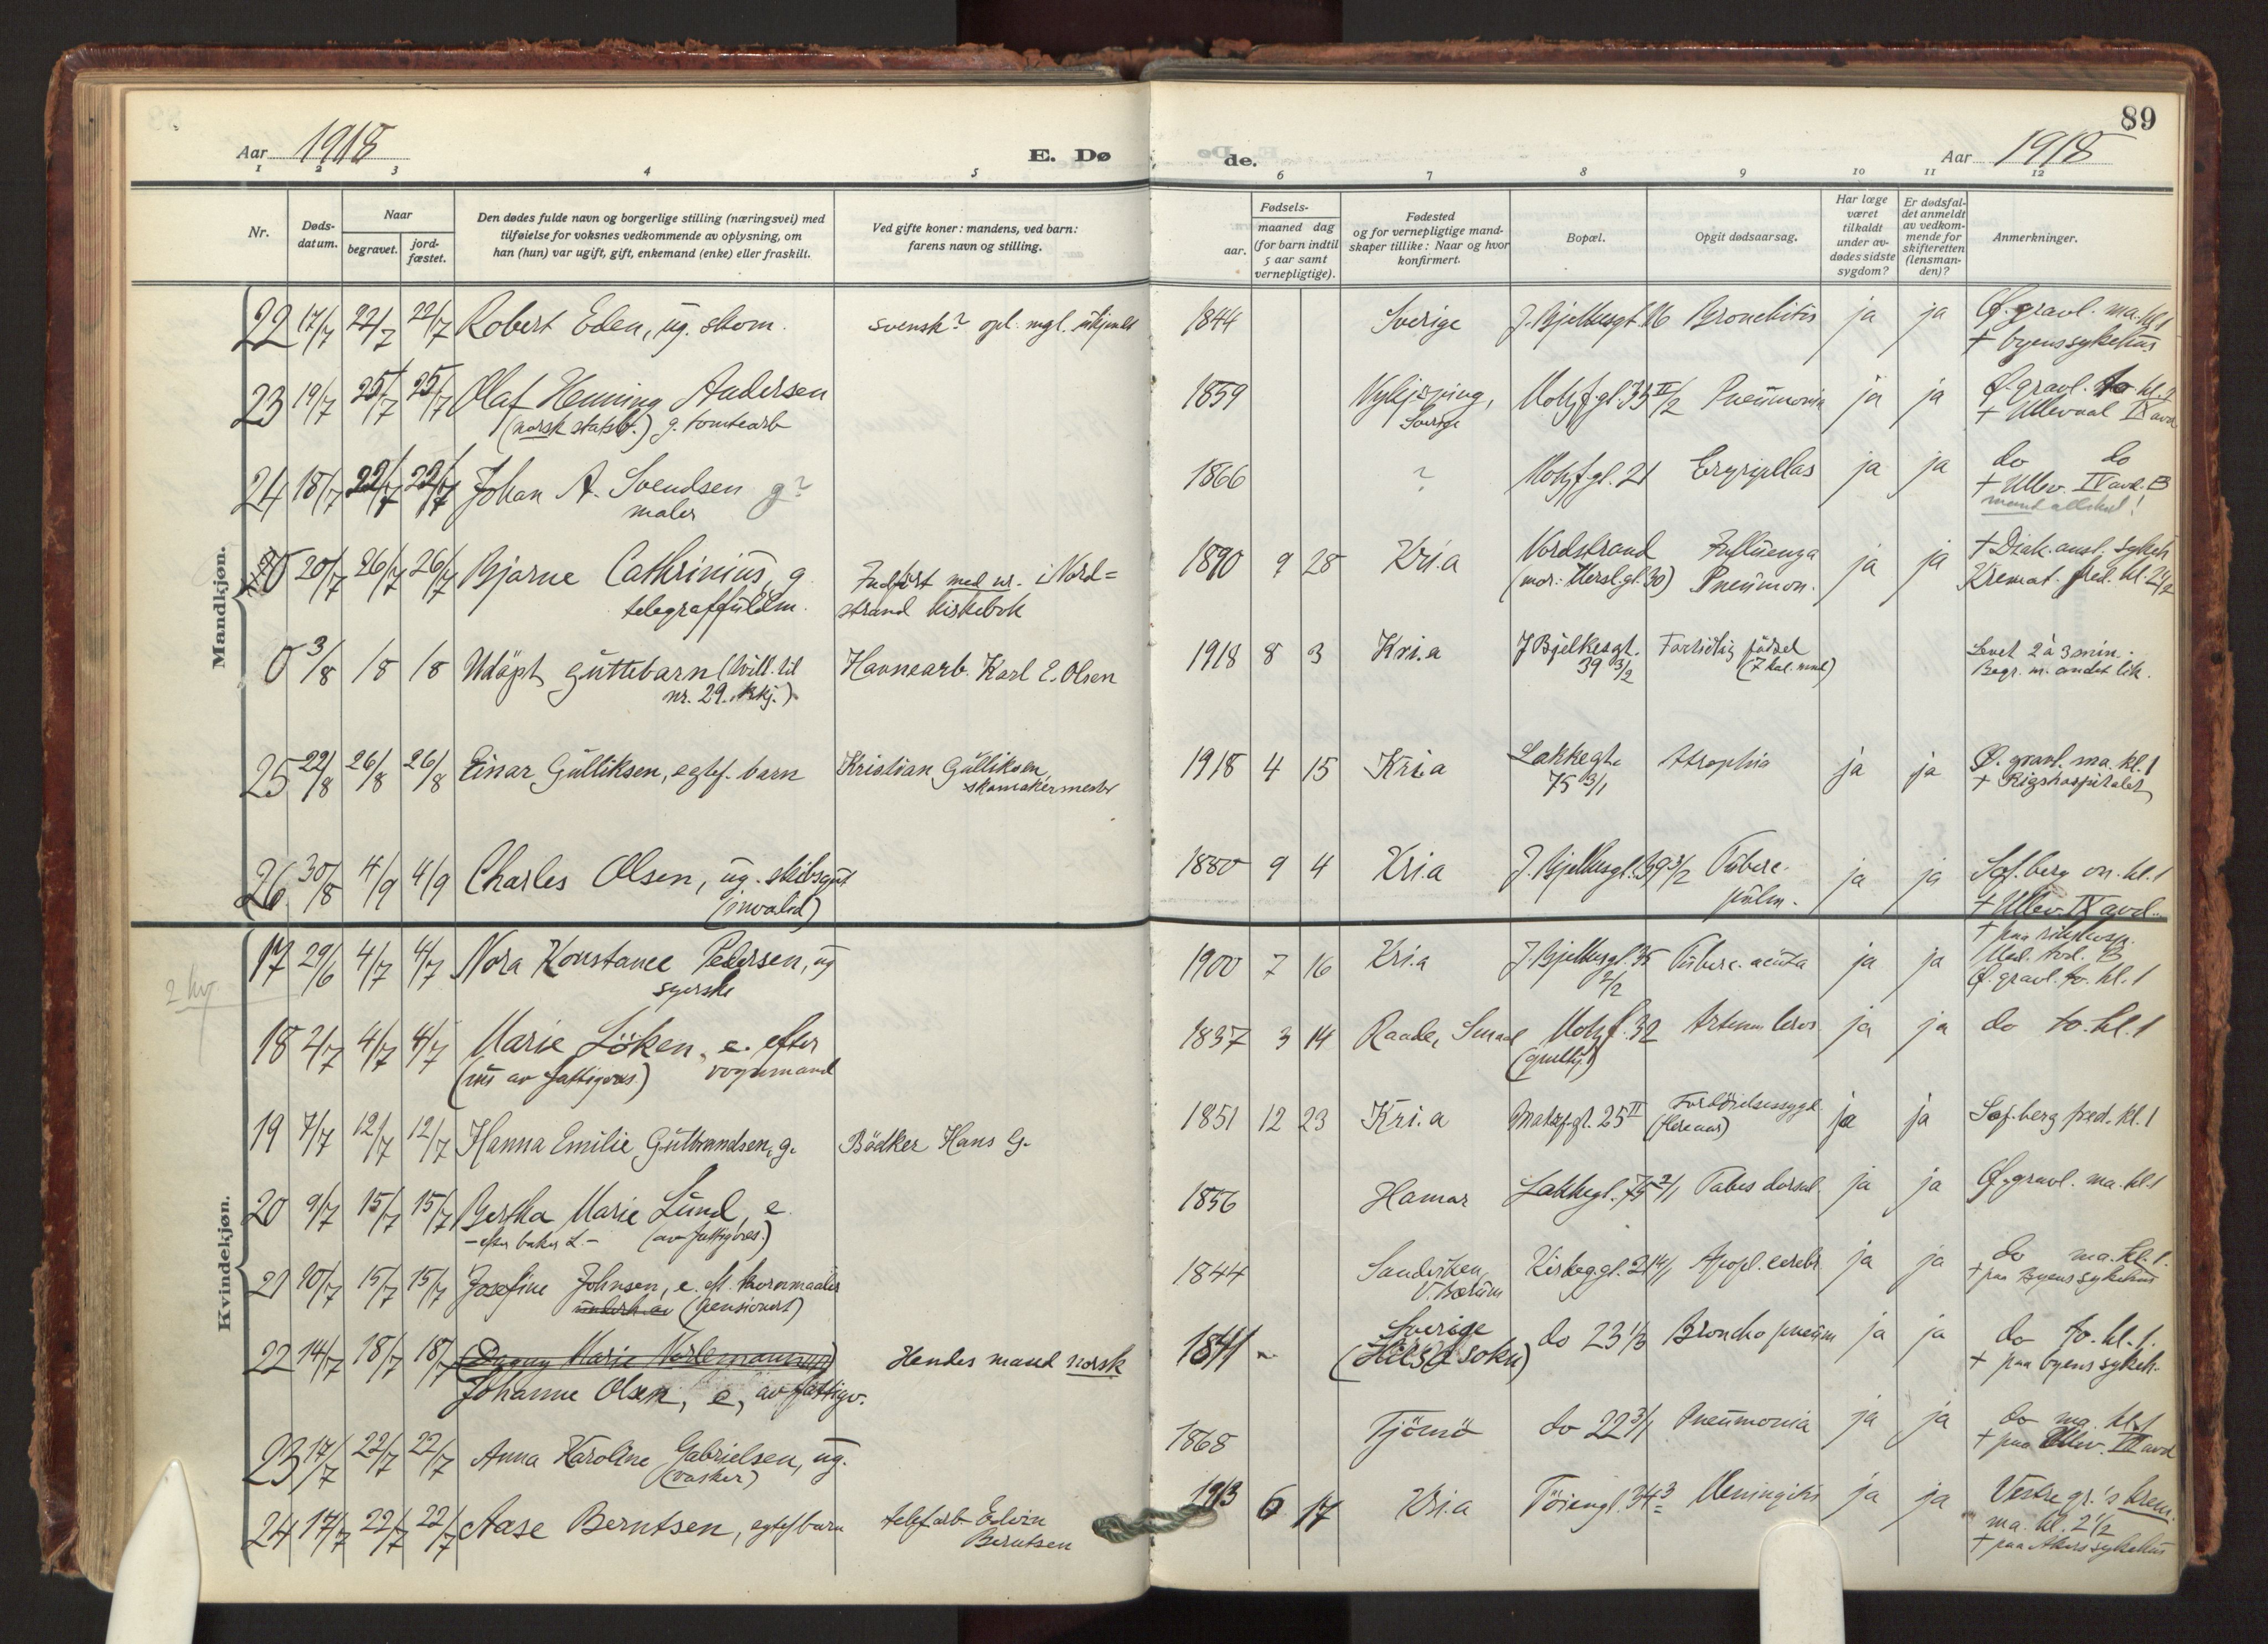 89
Aar 1918
E. Dø
de.
Aar 1918
1 2 3 4 5
6 7 8 9 10 11 12
Nr.
Døds-
datum.
Naar
begravet.
jord-
fæstet.
Den dødes fulde navn og borgerlige stilling (næringsvei) med
tilføielse for voksnes vedkommende av oplysning, om
han (hun) var ugift, gift, enkemand (enke) eller fraskilt.
Ved gifte koner: mandens, ved barn:
farens navn og stilling.
Fødsels-
aar.
maaned dag
(for barn indtil
5 aar samt
vernepligtige).
Fødested
og for vernepligtige mand-
skaper tillike: Naar og hvor
konfirmert.
Bopæl.
Opgit dødsaarsag.
Har læge
været
tilkaldt
under av-
dødes sidste
sygdom?
Er dødsfal-
det anmeldt
av vedkom-
mende for
skifteretten
(lensman-
den)?
Anmerkninger.
Mandkjøn.
22 17/7 22/7 22/7 Robert Eden, ug. skom. svensk? opl. mgl. 1844 Sverige J. Bjelkesgt. 16 Bronchitis ja ja Ø. gravl. ma. kl. 1
+ byens sykehus
23 19/7 25/7 25/7 Olaf Henning Andersen 1859 Nykjøping, Motzf.gt. 35 II/2 Pneumonia ja ja Ø. gravl. to kl. 1
(norsk statsb.) g. tomtearb Sverige + Ullevaal IX avd
24 18/7 22/7 22/7 Johan A. Svendsen g? 1866 ? Motzf.gt. 21 Erysipelas ja ja do do
maler + Ullev. IV avd. B
0 20/7 26/7 26/7 Bjarne Cathrinius, g. Indført med nr. i Nord= 1890 9 28 Kri.a Nordstrand Influenza ja ja + Diak. anst. sykeh
telegraffuldm. strand kirkebok (mor: Hersl.gt. 30) Pneumon. Kremat. fred. kl. 2 1/2
0 3/8 /8 /8 Udöpt guttebarn (tvill. til Havnearb. Karl E. Olsen 1918 8 3 Kri.a J Bjelkesgt. Fortidlig födsel Levet 2 à 3 min.
nr. 29. kkj.) 39 3/2 (7 kal. mnd) Begr. m. andet lik.
25 22/8 26/8 26/8 Einar Gulliksen, egtef. barn Kristian Gulliksen, 1918 4 15 Kri.a Lakkegt. Atrophia ja ja Ø. gravl. ma. kl. 1
skomakermester 75 3/1 + Rigshospitalet
26 30/8 4/9 4/9 Charles Olsen, ug. skibsgut 1880 9 4 Kri.a J. Bjelkesgt. 39 3/2 Tuberc. ja ja Sof.berg on. kl. 1
(invalid) pulm. + Ullev. IX avd.
Kvindekjøn.
2 kv
17 29/6 4/7 4/7 Nora Konstance Pedersen, ug 1900 7 16 Kri.a J. Bjelkesgt. 35 Tuberc. acuta ja ja + paa rikshosp.
syerske 2/2 Med. avd. B
Ø. gravl. to. kl. 1
18 2/7 4/7 4/7 Marie Löken, e. efter 1837 3 14 Raade, Smaal Motzf. 32 ja ja do to. kl. 1
(und av fattigvæs.) vognmand
19 7/7 12/7 12/7 Hanna Emilie Gulbrandsen, g. Bödker Hans G. 1851 12 23 Kri.a Motzf.gt. 25 II ja ja Sof.berg fred. kl. 1
(flere aar)
20 9/7 15/7 15/7 Bertha Marie Lund, e. 1856 Hamar Lakkegt. 75 2/1 Tabes dorsal. ja ja Ø. gravl. ma. kl. 1
- efter baker L. - (av fattigvæs.)
21 10/7 15/7 15/7 Josefine Johnsen, e. eft. kornmaaler 1844 Sandviken, Kirkeg.gt. 21 4/1 Apopl. cerebr. ja ja do ma. kl. 1.
underh. av (pensionert) V. Bærum + paa Byens sykehus
22 14/7 18/7 18/7 (Dagny Marie) Hendes mand norsk 1841 Sverige do 23 1/3 Bronchopneum ja ja do to. kl. 1.
Johanne Olsen, e, av fattigv. + paa byens sykeh.
23 17/7 22/7 22/7 Anna Karoline Gabrielsen, ug. 1868 Tjömö do 22 3/1 Pneumonia ja ja do ma. kl. 1
(vasker) + paa Ullev. III avd
24 17/7 22/7 22/7 Aase Berntsen, egtef barn telef arb Edvin 1913 6 17 Kri.a Töiengt. 34 3 Meningitis ja ja Vestre gr.'s krem.
Berntsen ma. kl. 2 1/2
+ paa Akers sykehus